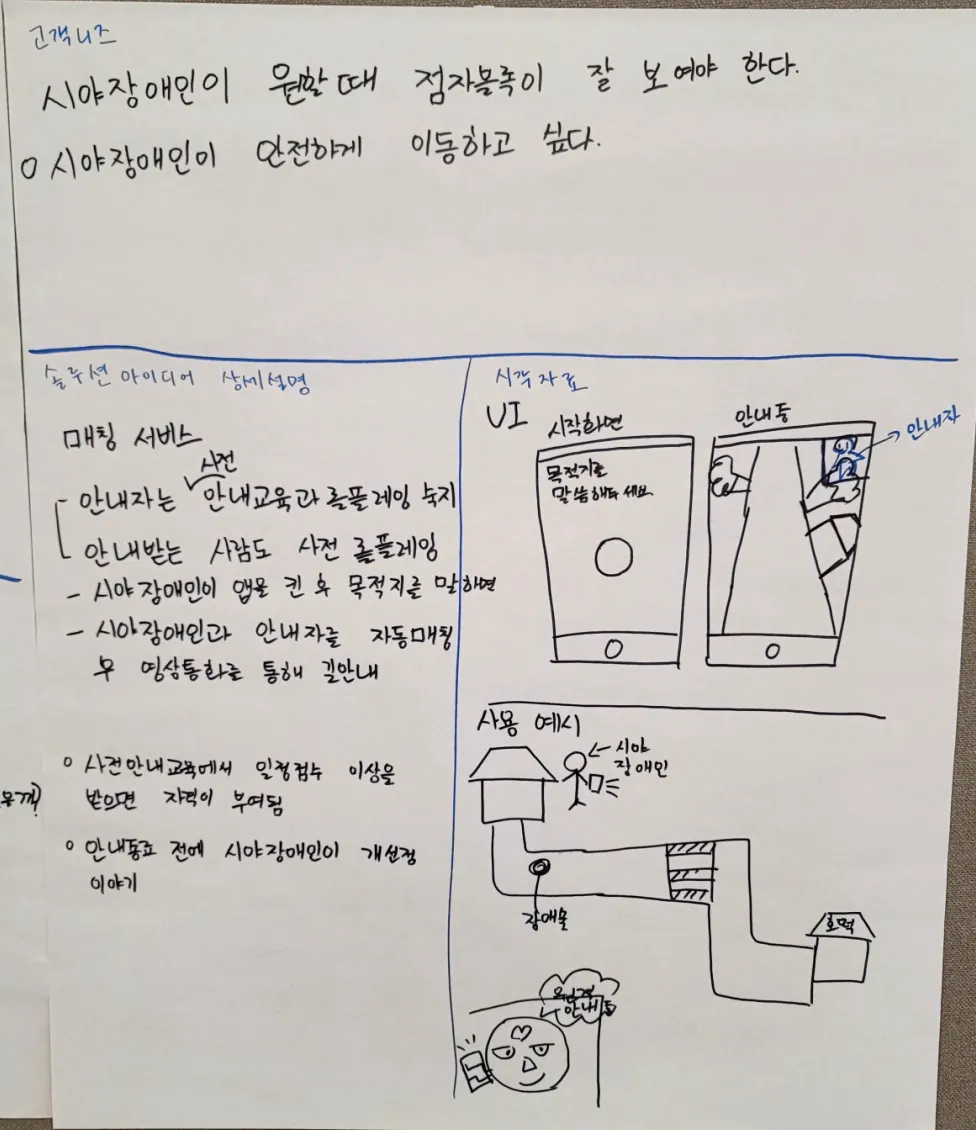 고객니즈
시야장애인이 원할때 점자블록이 잘 보여야 한다.
o 시야장애인이 안전하게 이동하고 싶다.
솔루션 아이디어 상세설명
매칭 서비스
사전
- 안내자는 안내교육과 롤플레잉 숙지
안내받는 사람도 사전 롤플레잉
- 시야장애인이 앱을 킨 후 목적지를 말하면
- 시야장애인과 안내자를 자동매칭
후 영상통화를 통해 길안내
o 사전안내교육에서 일정점수 이상을
받으면 자격이 부여됨
o 안내종료 전에 시야장애인이 개선점
이야기
시각자료
UI
시작화면
목적지를
말씀해주세요.
안내중
안내자
사용 예시
시야
장애인
장애물
안내중